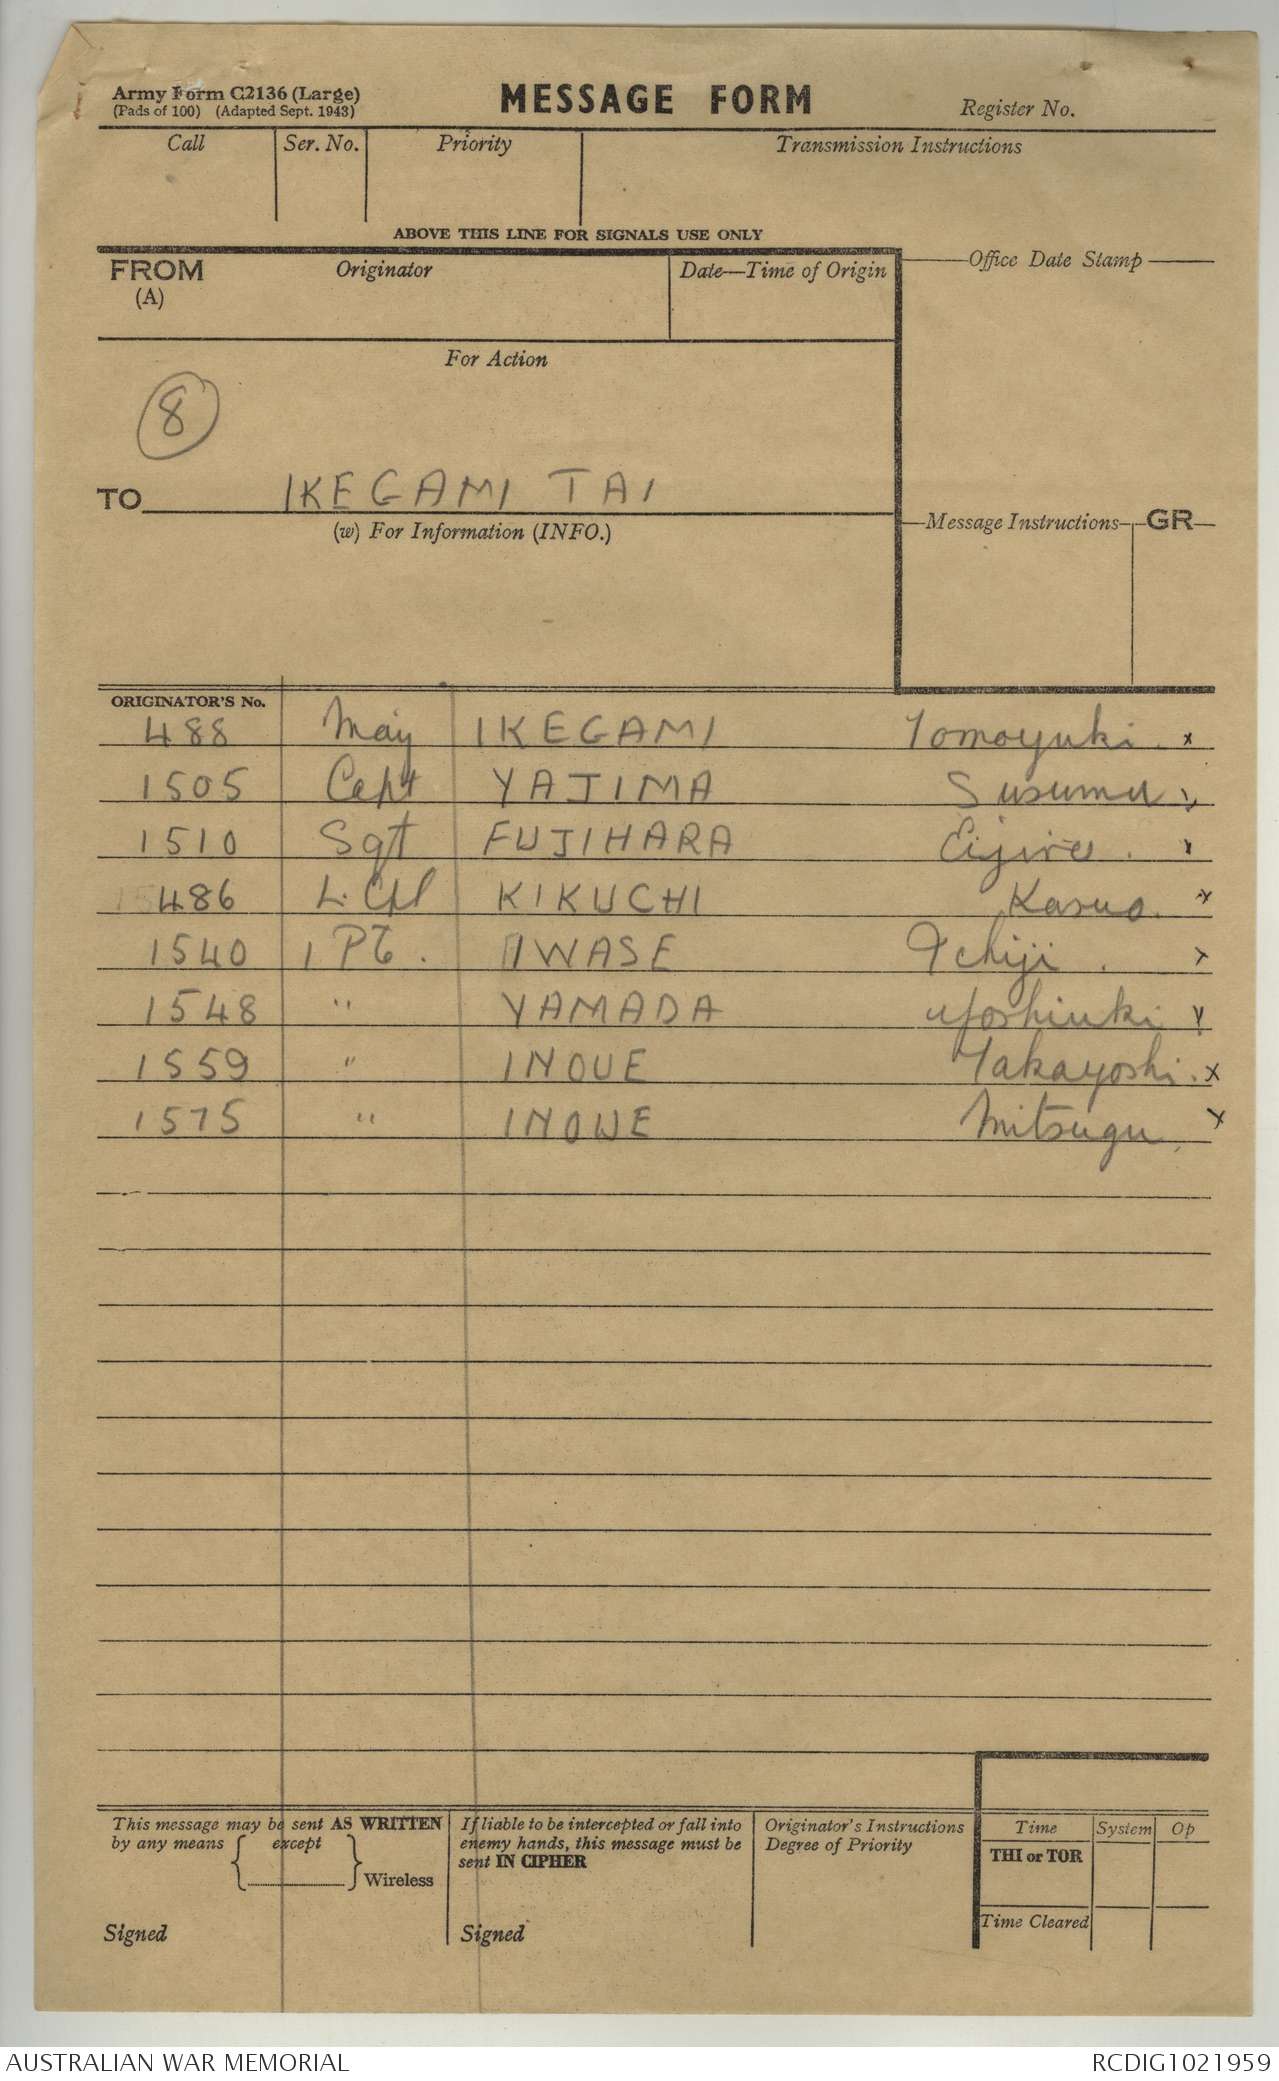 Army Form C2136 (Large)
(Pads of 100) (Adapted Sept. 1943)
MESSAGE FORM
Register No.
Call
Ser. No.
Priority
Transmission Instructions
ABOVE THIS LINE FOR SIGNALS USE ONLY
FROM
(A)
Originator
Date—Time of Origin
Office Date Stamp
For Action
8
TO IKEGAMI TAI
(w) For Information (INFO.)
Message Instructions
GR
ORIGINATOR'S No.
488 Maj IKEGAMI Tomoyuki. x
1505 Capt YAJIMA Susumu x
1510 Sgt FUJIHARA Eijiro. x
486 L. Cpl KIKUCHI Kasuo. x
1540 1 Pte. IWASE Ichiji. x
1548 " YAMADA Yoshiuki x
1559 " INOUE Takayoshi. x
1575 " INOUE Mitsugu. x
This message may be sent AS WRITTEN
by any means { except }
Wireless
Signed
If liable to be intercepted or fall into
enemy hands, this message must be
sent IN CIPHER
Signed
Originator's Instructions
Degree of Priority
Time
System
Op
THI or TOR
Time Cleared
AUSTRALIAN WAR MEMORIAL
RCDIG1021959